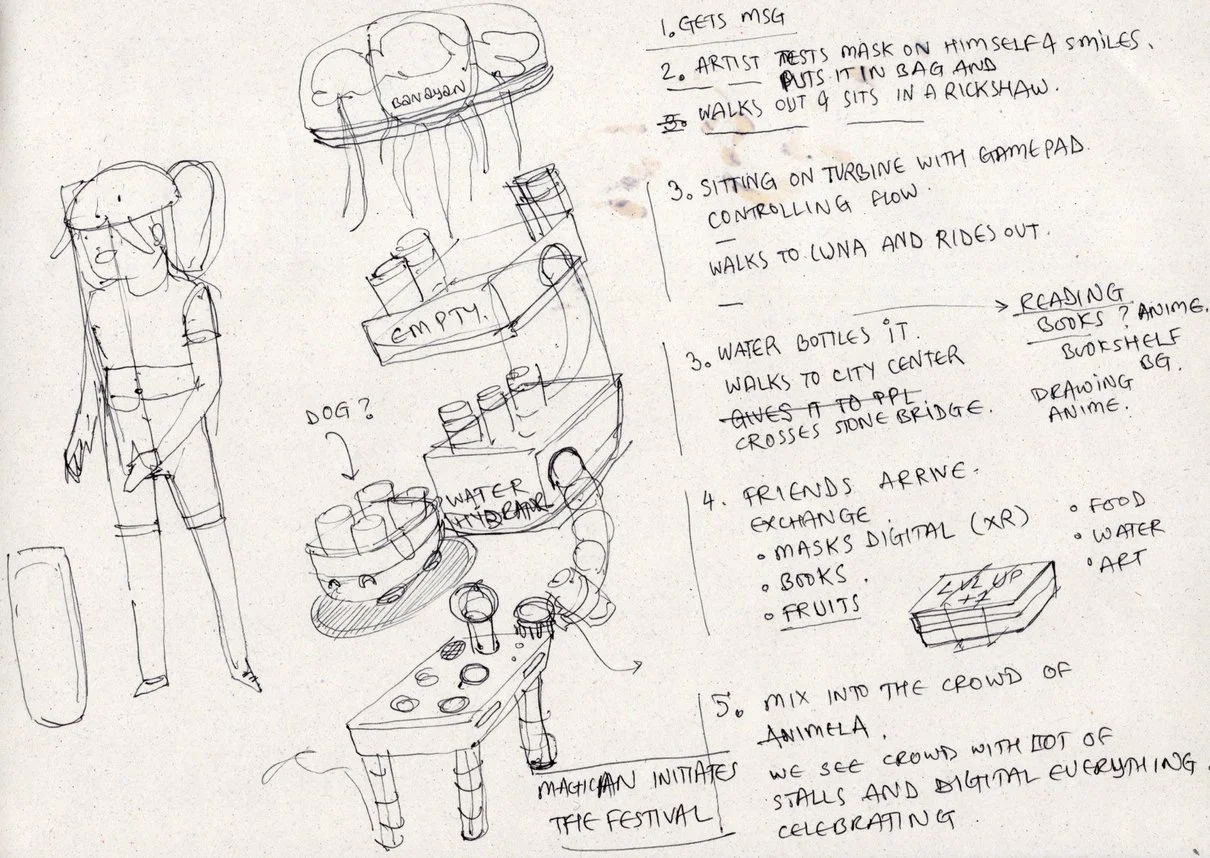 1. GETS MSG
2. ARTIST TESTS MASK ON HIMSELF & SMILES.
PUTS IT IN BAG AND
3. WALKS OUT & SITS IN A RICKSHAW.
3. SITTING ON TURBINE WITH GAMEPAD
CONTROLLING FLOW.
WALKS TO LUNA AND RIDES OUT.
3. WATER BOTTLES IT.
WALKS TO CITY CENTER
GIVES IT TO PPL
CROSSES STONE BRIDGE.
READING
BOOKS? ANIME.
BOOKSHELF
BG.
DRAWING
ANIME.
4. FRIENDS ARRIVE.
EXCHANGE.
• MASKS DIGITAL (XR)
• BOOKS.
• FRUITS
• FOOD
• WATER
• ART
LVL UP
+1
5. MIX INTO THE CROWD OF
ANIMELA.
WE SEE CROWD WITH LOT OF
STALLS AND DIGITAL EVERYTHING
CELEBRATING.
BANAYAN
EMPTY.
DOG?
WATER
HYDRATOR
MAGICIAN INITIATES
THE FESTIVAL